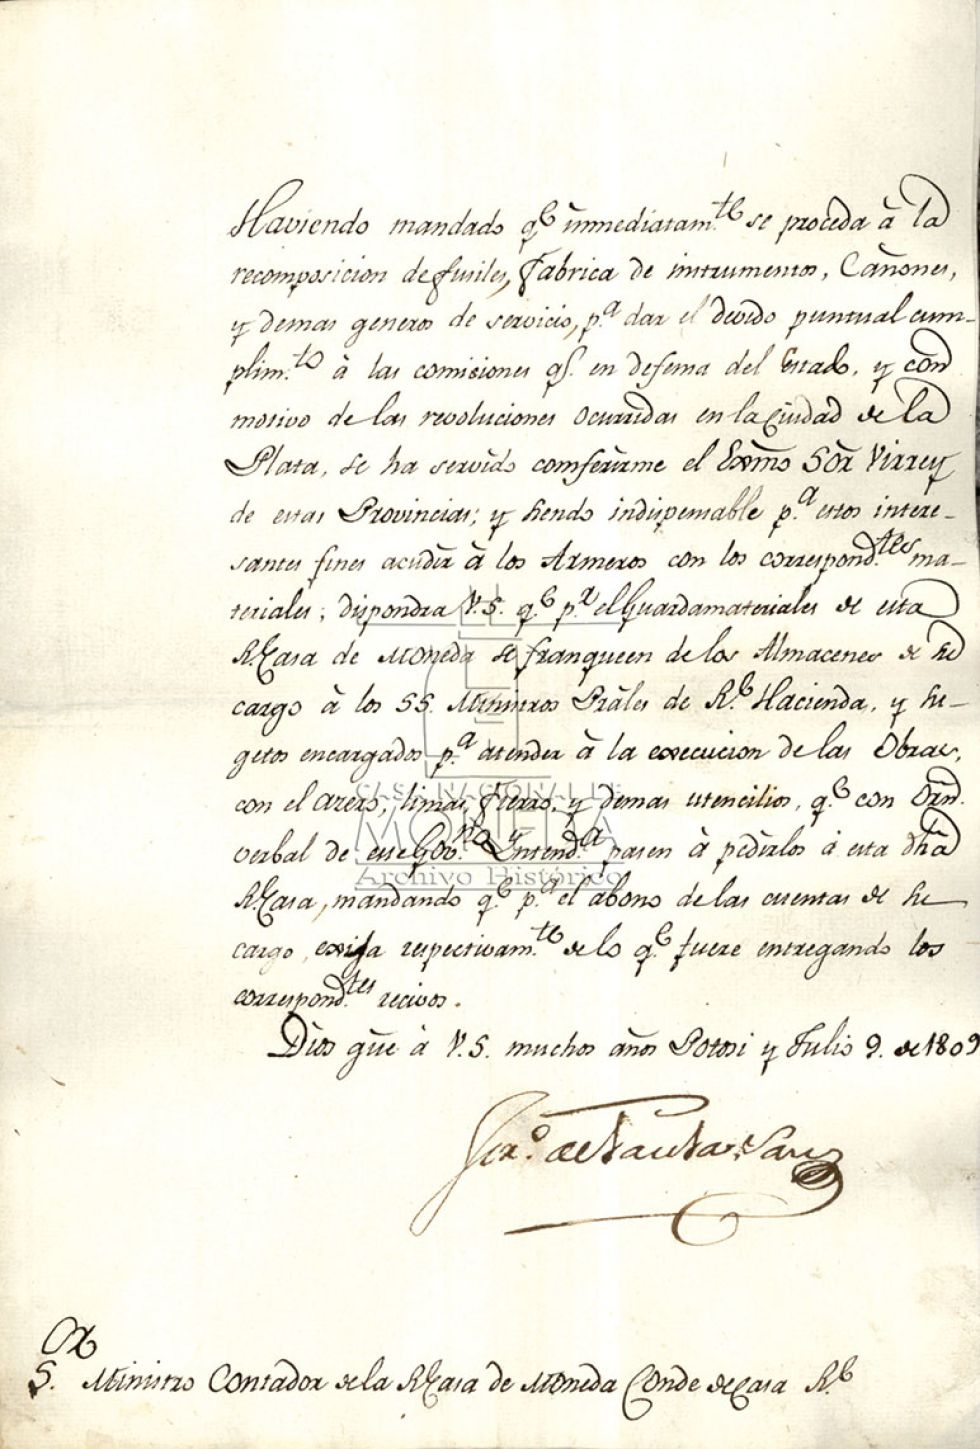 Haviendo mandado q.e ìnmediatam.te se proceda à la
recomposicion de fusiles, Fabrica de instrumentos, Cañones,
y demas generos de servicio, p.a dar el devido puntual cum-
plim.to à las comisiones q.e en defensa del Estado, y con
motivo de las revoluciones ocurridas en la Ciudad de la
Plata, se ha servido comferirme el Exmõ Sõr Virrey
de estas Provincias; y siendo indispensable p.a estos intere-
santes fines acudir à los Armeros con los correspond.tes ma-
teriales; dispondra V.S. q.e p.r el Guardamateriales de esta
R.l Casa de Moneda se franqueen de los Almacenes de su
cargo à los SS. Ministros Prãles de R.l Hacienda, y su-
getos encargados p.a atender à la execucion de las Obras,
con el azero, limas, fierro, y demas utencilios, q.e con Orñ.
verbal de este Gov.no é Yntend.a pasen à pedirlos à esta dhã
R.l Casa, mandando q.e p.a el abono de las cuentas de su
cargo, exija respectivam.te de lo q.e fuere entregando los
correspond.tes recivos.
Dios gũe à V.S. muchos años Potosi y Julio 9. de 1809
Fran.co de Paula Sanz
S. Ministro Contador de la R.l Casa de Moneda Conde de Casa R.l
CASA NACIONAL DE
MONEDA
Archivo Histórico